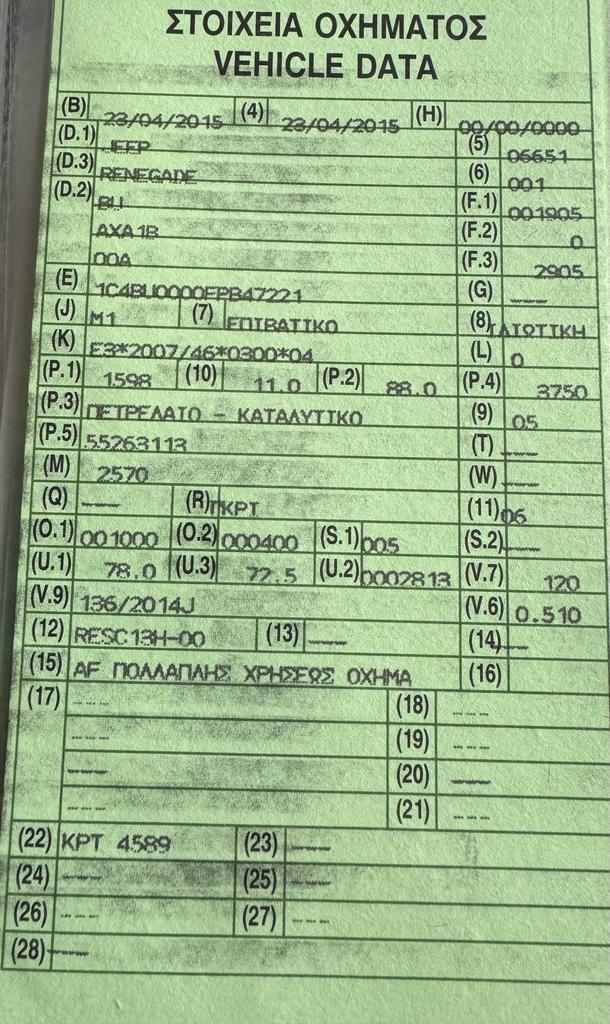 ΣΤΟΙΧΕΙΑ ΟΧΗΜΑΤΟΣ
VEHICLE DATA
(B) 23/04/2015 (4) 23/04/2015 (H) 00/00/0000
(D.1) JEEP (5) 06651
(D.3) RENEGADE (6) 001
(D.2) BU (F.1) 001905
AXA1B (F.2) 0
00A (F.3) 2905
(E) 1C4BU0000FPB47221 (G) ---
(J) M1 (7) ΕΠΙΒΑΤΙΚΟ (8) ΙΔΙΩΤΙΚΗ
(K) E3*2007/46*0300*04 (L) 0
(P.1) 1598 (10) 11.0 (P.2) 88.0 (P.4) 3750
(P.3) ΠΕΤΡΕΛΑΙΟ - ΚΑΤΑΛΥΤΙΚΟ (9) 05
(P.5) 55263113 (T) ---
(M) 2570 (W) ---
(Q) --- (R) ΓΚΡΙ (11) 06
(O.1) 001000 (O.2) 000400 (S.1) 005 (S.2) ---
(U.1) 78.0 (U.3) 72.5 (U.2) 0002813 (V.7) 120
(V.9) 136/2014J (V.6) 0.510
(12) RESC13H-00 (13) --- (14) ---
(15) AF ΠΟΛΛΑΠΛΗΣ ΧΡΗΣΕΩΣ ΟΧΗΜΑ (16)
(17) --- (18) ---
--- (19) ---
--- (20) ---
--- (21) ---
(22) KPT 4589 (23) ---
(24) --- (25) ---
(26) --- (27) ---
(28) ---